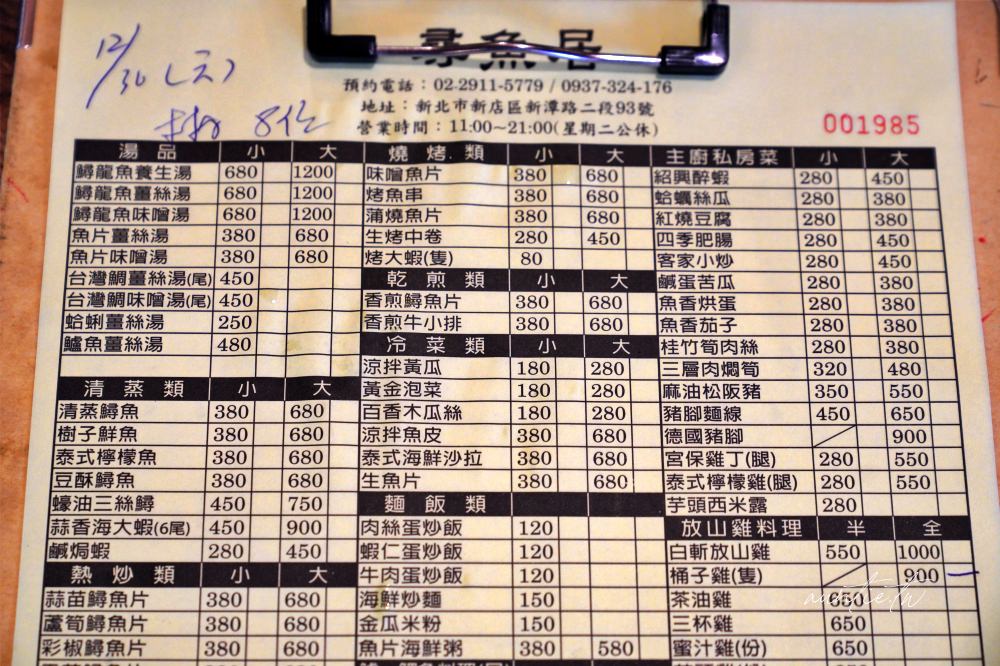 尋魚居
12/30(六)
8位
預約電話：02-2911-5779 / 0937-324-176
地址：新北市新店區新潭路二段93號
營業時間：11:00~21:00(星期二公休)
001985
湯品 小 大
鱘龍魚養生湯 680 1200
鱘龍魚薑絲湯 680 1200
鱘龍魚味噌湯 680 1200
魚片薑絲湯 380 680
魚片味噌湯 380 680
台灣鯛薑絲湯(尾) 450
台灣鯛味噌湯(尾) 450
蛤蜊薑絲湯 250
鱸魚薑絲湯 480
清蒸類 小 大
清蒸鱘魚 380 680
樹子鮮魚 380 680
泰式檸檬魚 380 680
豆酥鱘魚 380 680
蠔油三絲鱘 450 750
蒜香海大蝦(6尾) 450 900
鹹焗蝦 280 450
熱炒類 小 大
蒜苗鱘魚片 380 680
蘆筍鱘魚片 380 680
彩椒鱘魚片 380 680
燒烤類 小 大
味噌魚片 380 680
烤魚串 380 680
蒲燒魚片 380 680
生烤中卷 280 450
烤大蝦(隻) 80
乾煎類 小 大
香煎鱘魚片 380 680
香煎牛小排 380 680
冷菜類 小 大
涼拌黃瓜 180 280
黃金泡菜 180 280
百香木瓜絲 180 280
涼拌魚皮 380 680
泰式海鮮沙拉 380 680
生魚片 380 680
麵飯類
肉絲蛋炒飯 120
蝦仁蛋炒飯 120
牛肉蛋炒飯 120
海鮮炒麵 150
金瓜米粉 150
魚片海鮮粥 380 580
主廚私房菜 小 大
紹興醉蝦 280 450
蛤蠣絲瓜 280 380
紅燒豆腐 280 380
四季肥腸 280 450
客家小炒 280 450
鹹蛋苦瓜 280 380
魚香烘蛋 280 380
魚香茄子 280 380
桂竹筍肉絲 280 380
三層肉燜筍 320 480
麻油松阪豬 350 550
豬腳麵線 450 650
德國豬腳 900
宮保雞丁(腿) 280 550
泰式檸檬雞(腿) 280 550
芋頭西米露 280
放山雞料理 半 全
白斬放山雞 550 1000
桶子雞(隻) 900
茶油雞 350
三杯雞 650
蜜汁雞(份) 650
auntie.tw